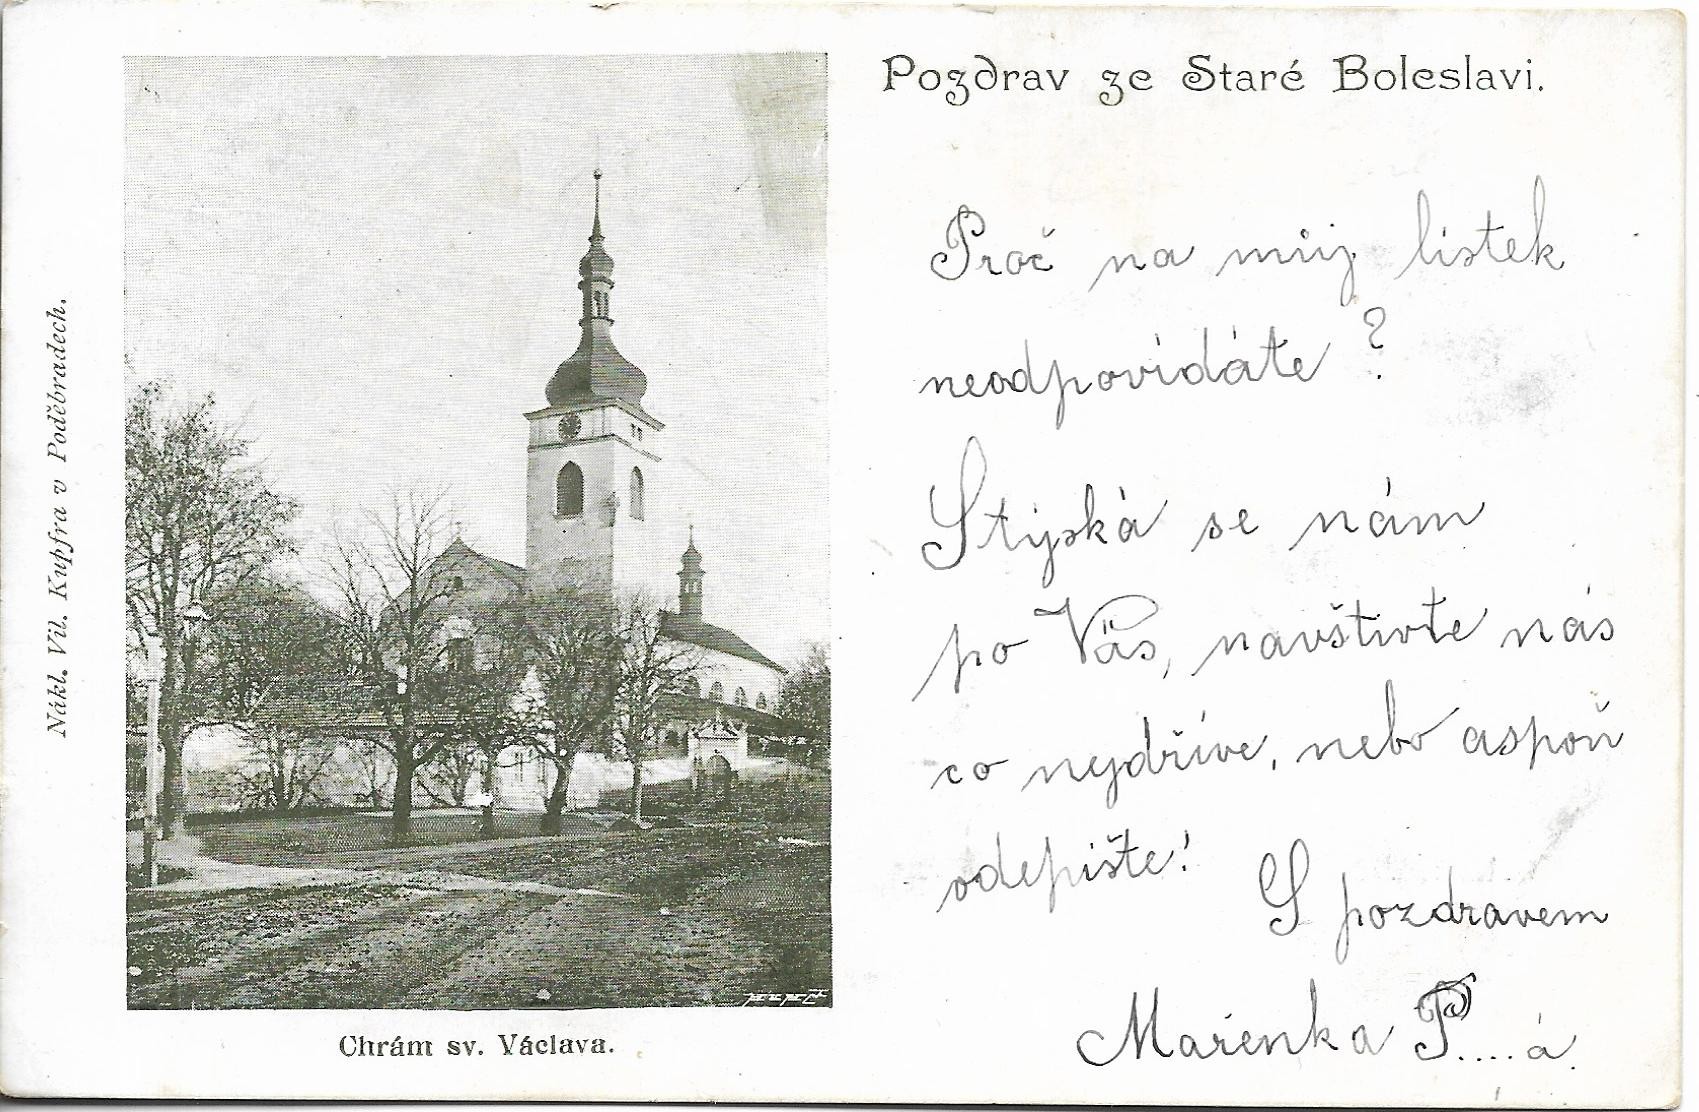 Pozdrav ze Staré Boleslavi.
Proč na můj lístek
neodpovídáte?
Stýská se nám
po Vás, navštivte nás
co nejdříve, nebo aspoň
odepište!
S pozdravem
Mařenka P....á.
Chrám sv. Václava.
Nákl. Vil. Kupfra v Poděbradech.